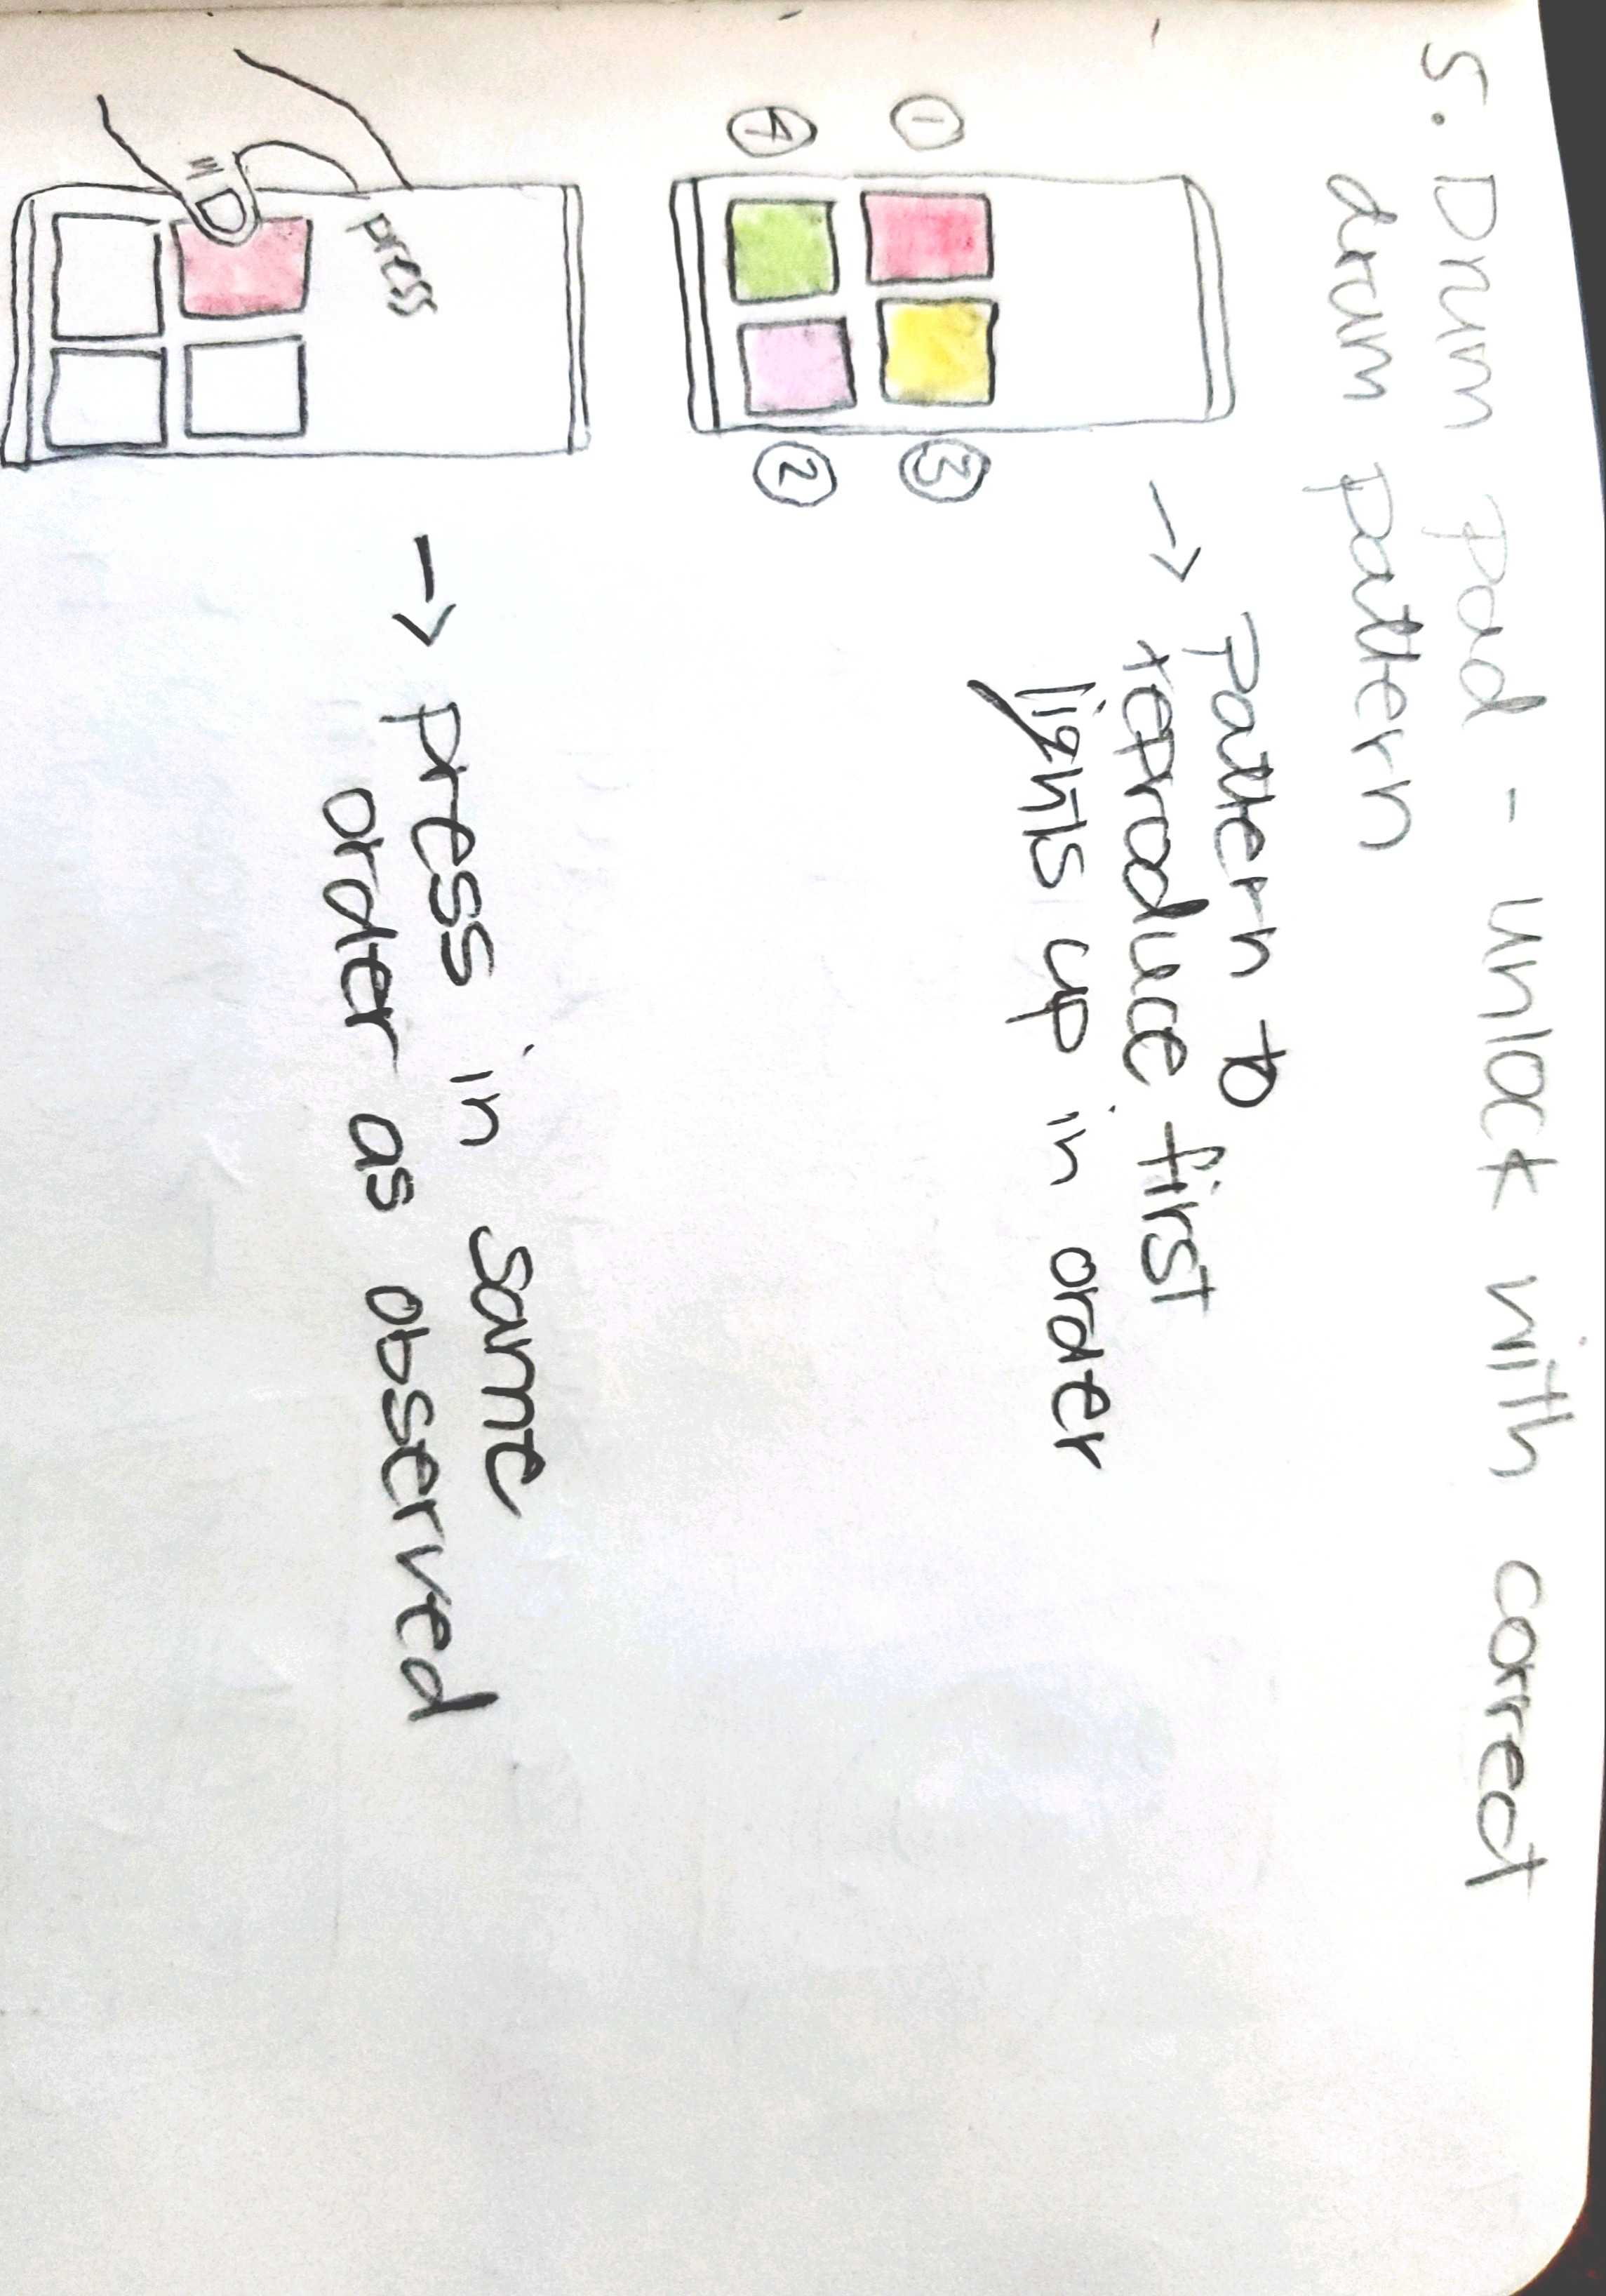 5. Drum pad - unlock with correct
drum pattern
→ pattern to
reproduce first
lights up in order
① ③
④ ②
press
→ press in same
order as observed